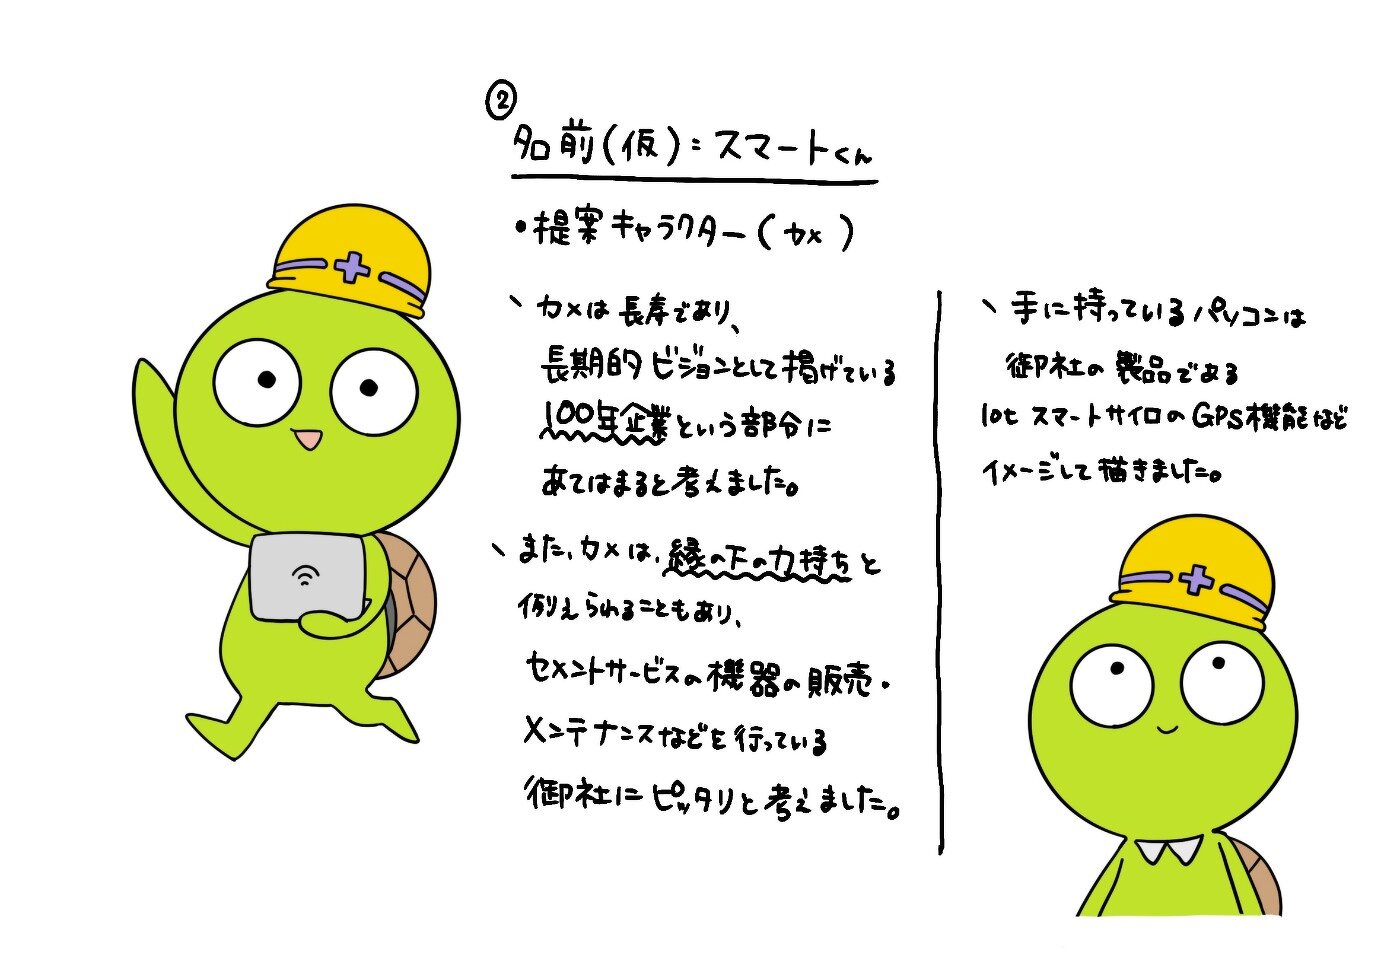 ②
名前(仮)：スマートくん
・提案キャラクター(カメ)
、カメは長寿であり、
長期的ビジョンとして掲げている
100年企業という部分に
あてはまると考えました。
、また、カメは、縁の下の力持ちと
例えられることもあり、
セメントサービスの機器の販売・
メンテナンスなどを行っている
御社にピッタリと考えました。
、手に持っているパソコンは
御社の製品である
Iot スマートサイロのGPS機能など
イメージして描きました。